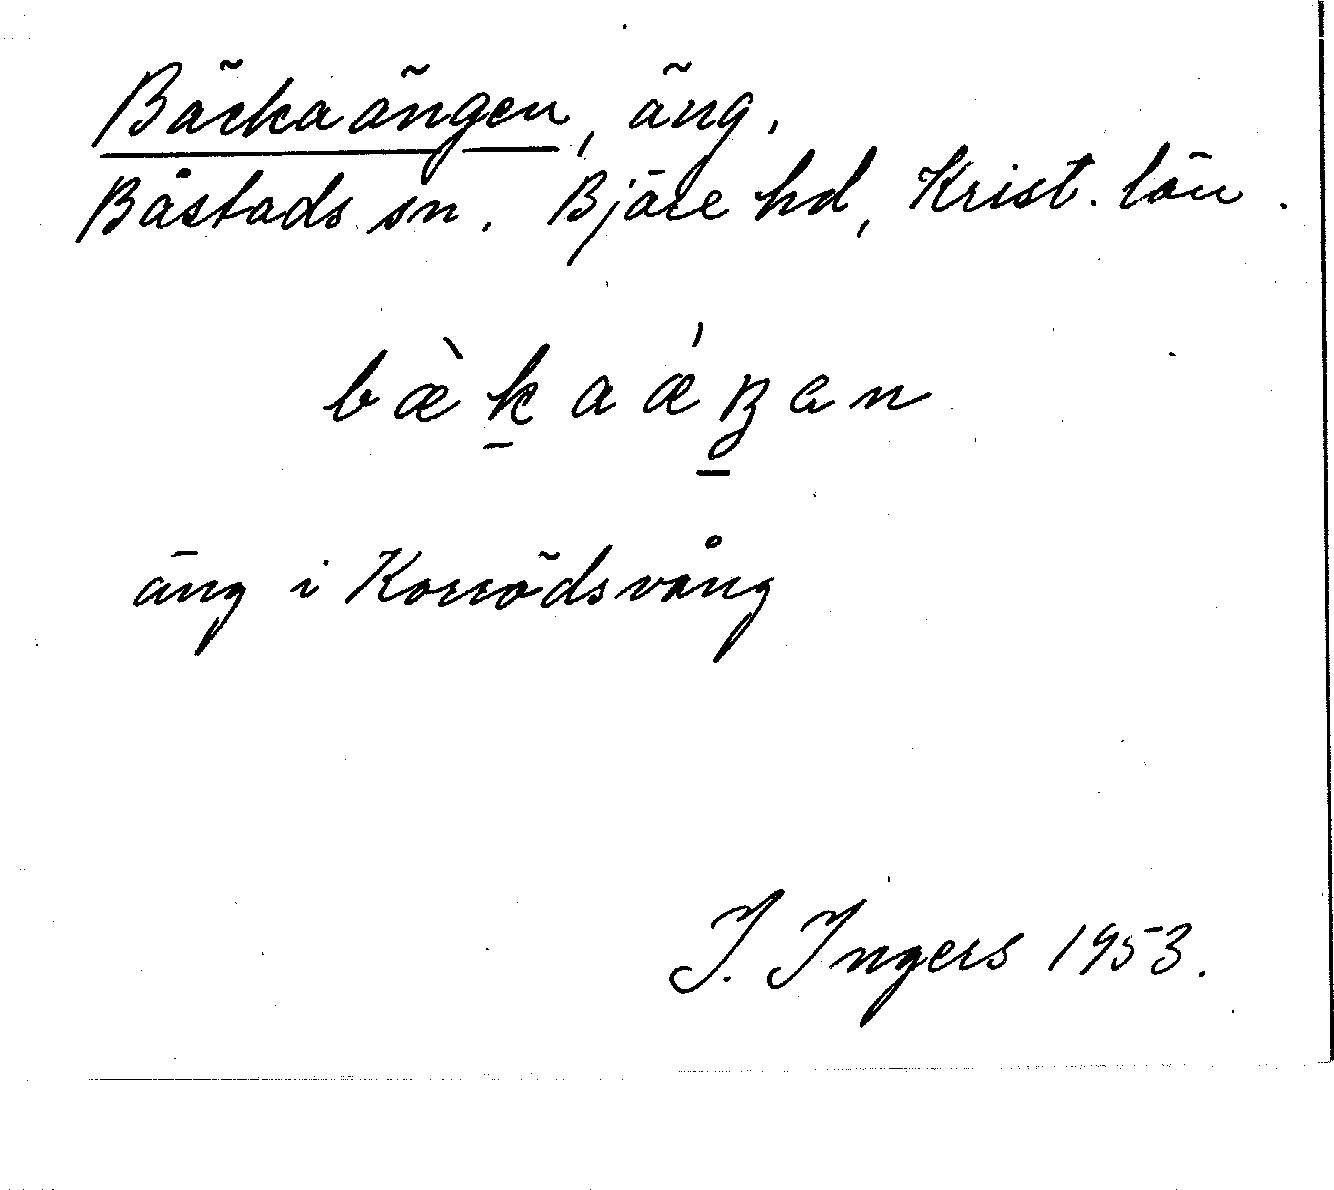 Bäckaängen, äng.
Båstads sn. Bjäre hd, Krist. län.
bæ̀k̠aǽŋ̠ən
äng i Korrödsvång
I. Ingers 1953.